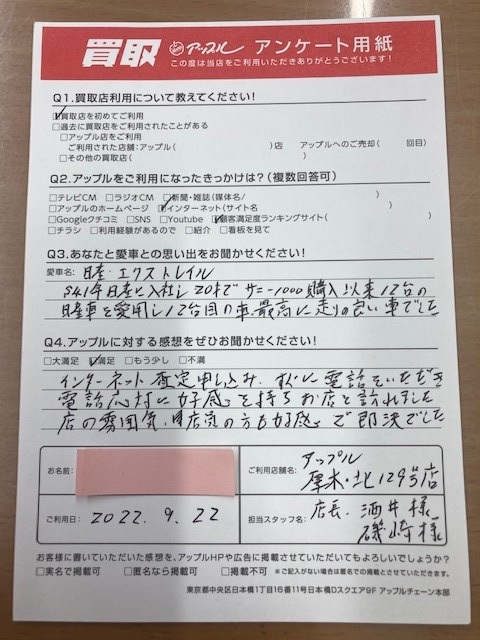 買取 アップル アンケート用紙
この度は当店をご利用いただきありがとうございます!
Q1.買取店利用について教えてください!
☑買取店を初めてご利用
□過去に買取店をご利用されたことがある
□アップル店をご利用
ご利用された店舗:アップル( )店 アップルへのご売却( 回目)
□その他の買取店( )
Q2.アップルをご利用になったきっかけは?(複数回答可)
□テレビCM □ラジオCM □新聞・雑誌(媒体名/ )
□アップルのホームページ ☑インターネット(サイト名 )
□Googleクチコミ □SNS □Youtube ☑顧客満足度ランキングサイト( )
□チラシ □利用経験があるので □紹介 □看板を見て
Q3.あなたと愛車との思い出をお聞かせください!
愛車名: 日産・エクストレイル
S41年日産に入社し20才でサニー1000購入以来12台の
日産車を愛用し12台目の車、最高に走りの良い車でした
Q4.アップルに対する感想をぜひお聞かせください!
□大満足 ☑満足 □もう少し □不満
インターネット査定申し込み、すぐに電話をいただき
電話応対に好感を持ちお店を訪れました
店の雰囲気、店員の方も好感で即決でした
お名前:
ご利用店舗名: アップル
厚木・北129号店
ご利用日: 2022.9.22
担当スタッフ名: 店長・酒井様
磯崎様
お客様に書いていただいた感想を、アップルHPや広告に掲載させていただいてもよろしいでしょうか?
□実名で掲載可 □匿名なら掲載可 □掲載不可 ※ご記入がない場合は匿名での掲載とさせていただきます。
東京都中央区日本橋1丁目16番11号日本橋Dスクエア9F アップルチェーン本部